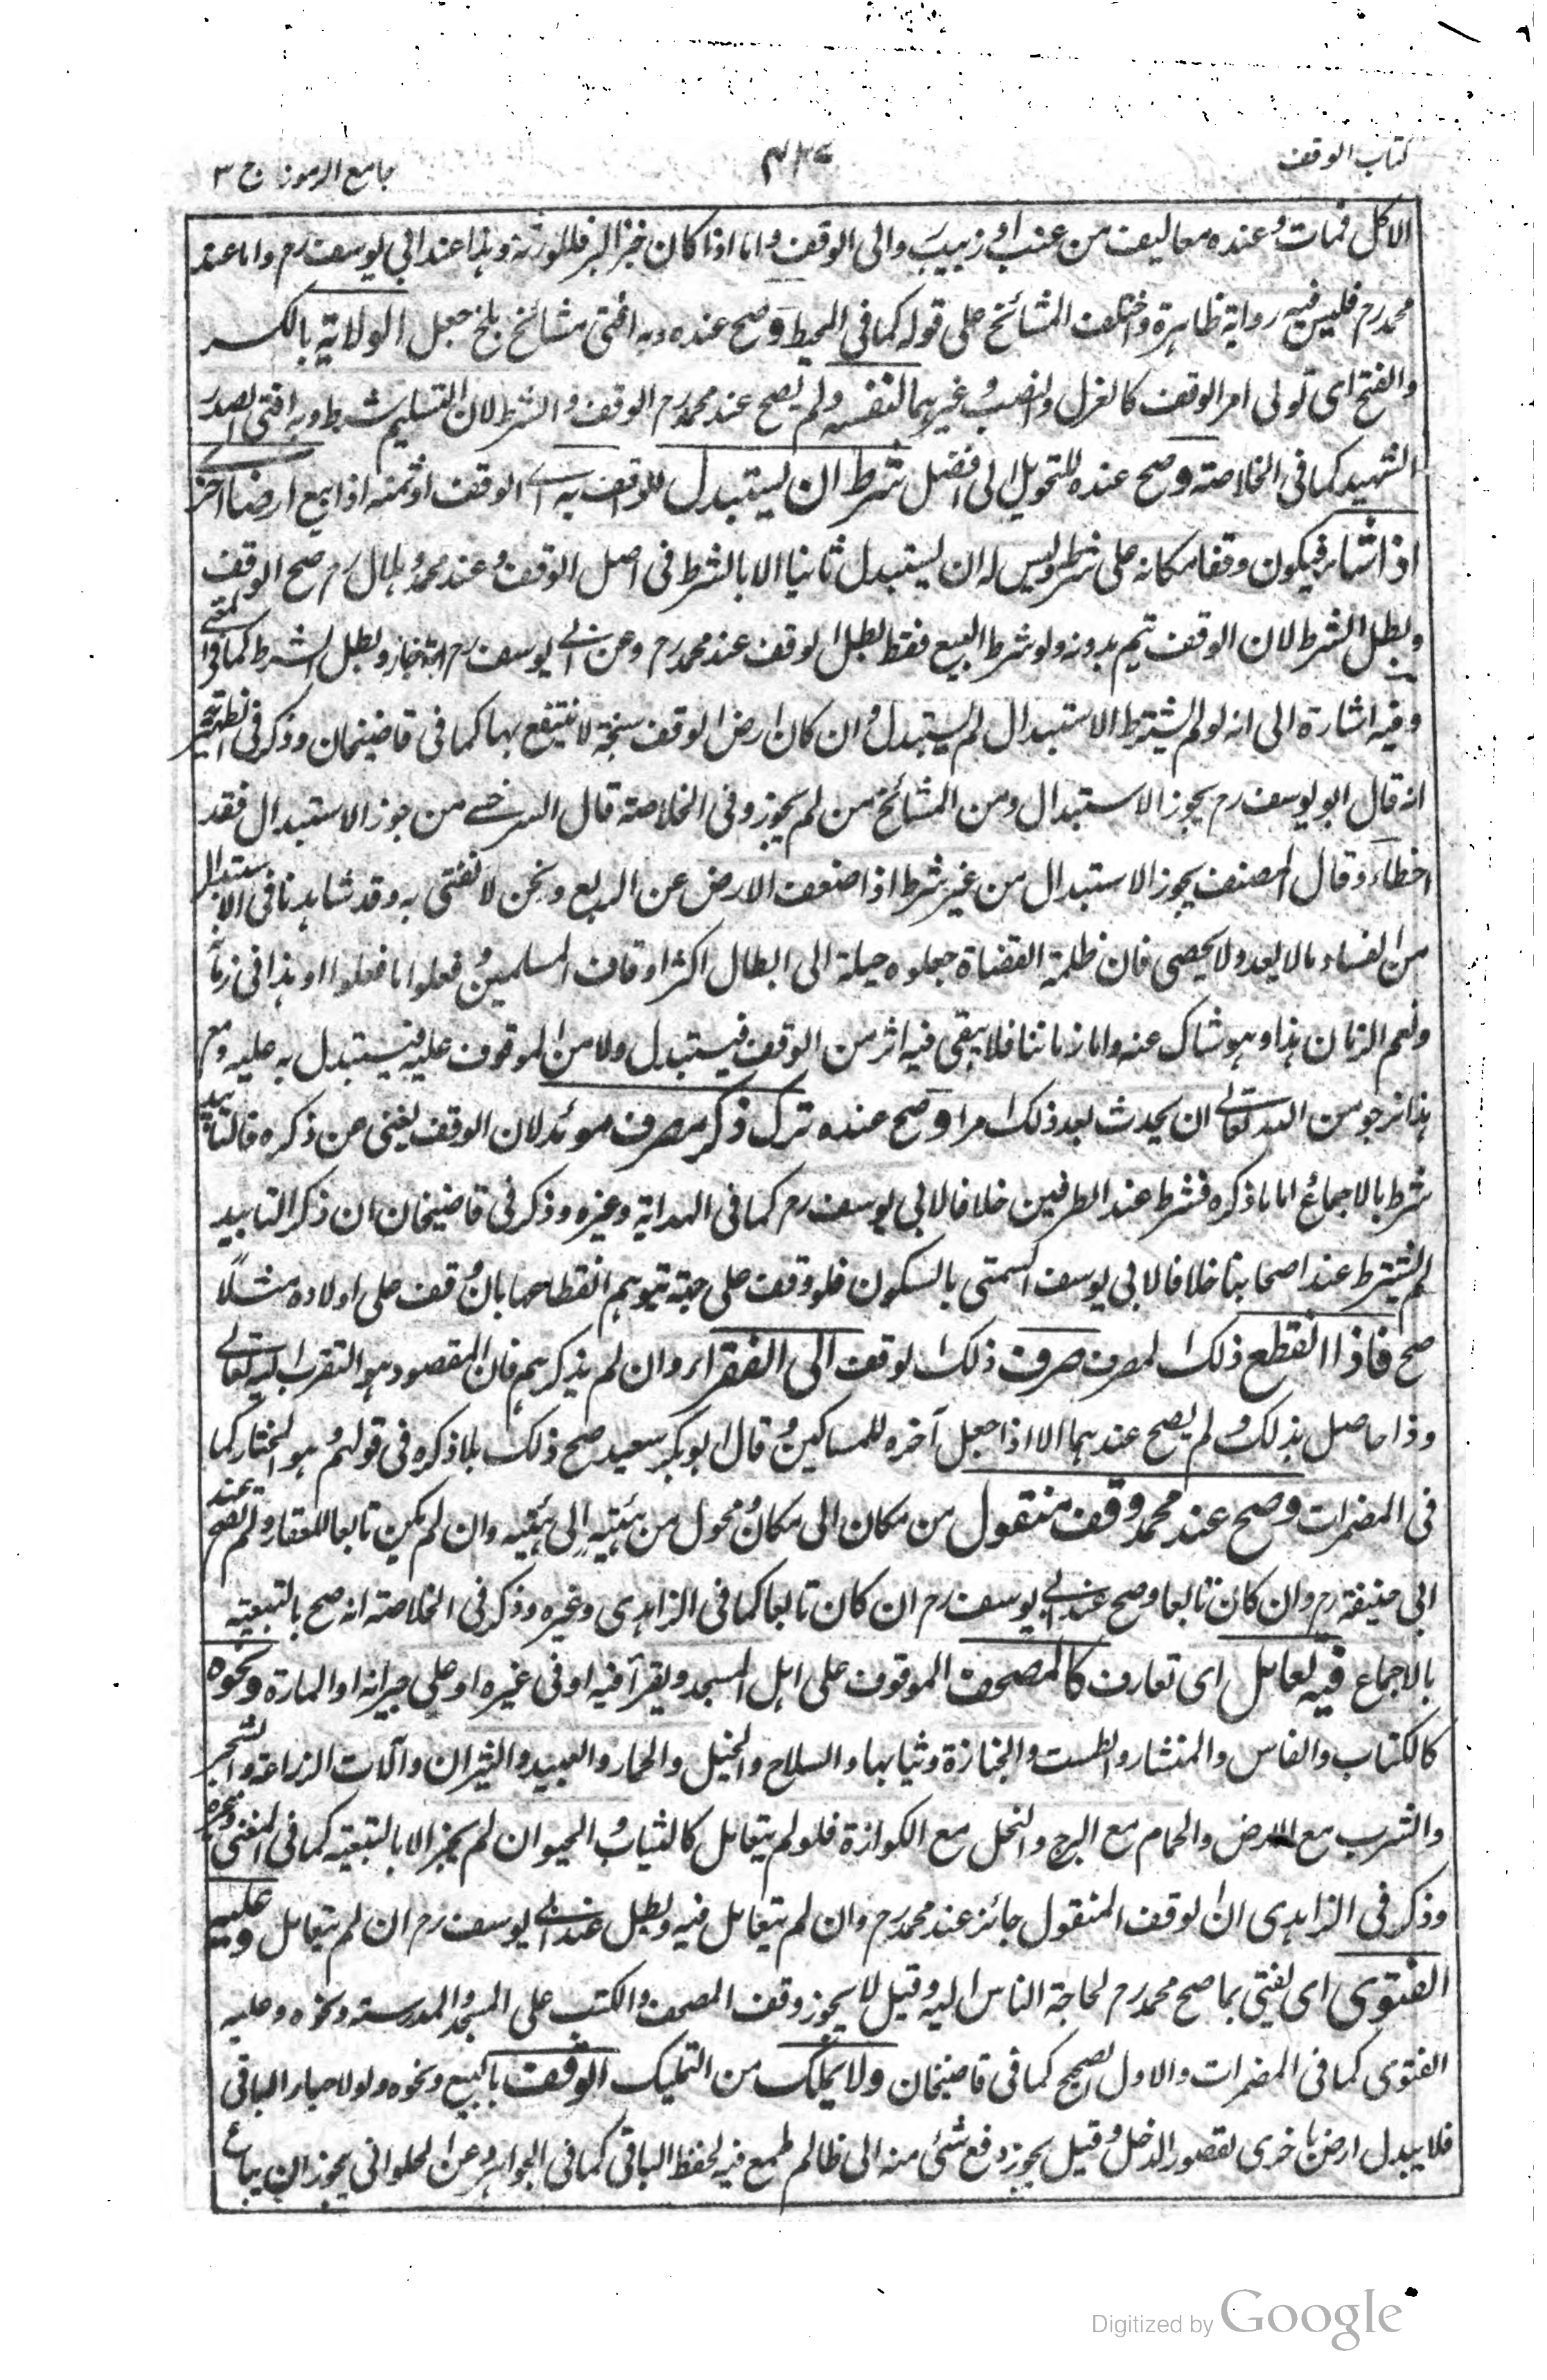 كتاب الوقف
جامع الرموز ج ٣
الاكل فمات وعنده معاليف من عنب او زبيب والى الوقف واما اذا كان خبز البر فللورثة وهذا عند ابي يوسف رم واما عند
محمد رم فليس فيه رواية ظاهرة واختلف المشائخ على قوله كما في المحيط وصح عنده وبه افتى مشائخ بلخ جعل الولاية بالكسر
والفتح اى تولى امر الوقف كالغزل والنصب وغيرهما لنفسه ولم يصح عند محمد رم الوقف والشرط لان التسليم شرط وبه افتى الصدر
الشهيد كما في الخلاصة وصح عنده للتحويل الى افضل شرط ان يستبدل للواقف به اے الوقف او ثمنه اذا بيع ارضا اخرے
اذا شاء فيكون وقفا مكانه على شرطه وليس له ان يستبدل ثانيا الا بالشرط في اصل الوقف وعند محمد وهلال رم صح الوقف
وبطل الشرط لان الوقف يتم بدونه ولو شرط البيع فقط بطل الوقف عند محمد رم وعن ابے يوسف رم انه جاز وبطل الشرط كما في
وفيه اشارة الى انه لو لم يشترط الاستبدال لم يستبدل وان كان ارض الوقف سبخة لا ينتفع بها كما في قاضيخان وذكر في
انه قال ابو يوسف رم يجوز الاستبدال ومن المشائخ من لم يجوز وفى الخلاصة قال السرخسے من جوز الاستبدال فقد
اخطاء وقال المصنف يجوز الاستبدال من غير شرط اذا ضعف الارض عن الريع ونحن لا نفتى به وقد شاهدنا فى الاستبدال
من الفساد مالا يعد ولا يحصى فان ظلمة القضاة جعلوه حيلة الى ابطال اكثر اوقاف المسلمين وفعلوا ما فعلوا او هذا فى زمانه
ونعم الزمان هذا وهو شاك عنه واما زماننا فلا يبقى فيه اثر من الوقف فيستبدل ولا من الموقوف عليه فيستبدل به عليه ومع
هذا نرجو من الله تعالے ان يحدث بعد ذلك امرا وصح عنده ترك ذكر مصرف موئد لان الوقف يغنى عن ذكره فالتابيد
شرط بالاجماع اما ما ذكره فشرط عند الطرفين خلافا لابى يوسف رم كما فى الهداية وغيره وذكر فى قاضيخان ان ذكر التابيد
لم يشترط عند اصحابنا خلافا لابى يوسف السمتى بالسكون فلو وقف على جهة يتوهم انقطاعها بان وقف على اولاده مثلا
صح فاذا انقطع ذلك المصرف صرف ذلك الوقف الى الفقراء وان لم يذكرهم فان المقصود هو التقرب اليه تعالے
وذا حاصل بذلك ولم يصح عندهما الا اذا جعل آخره للمساكين وقال ابو بكر سعيد صح ذلك بلا ذكره فى قولهم هو المختار كما
فى المضمرات وصح عند محمد وقف منقول من مكان الى مكان محول من هئية الى هئية وان لم يكن تابعا للعقار ولم يصح عند
ابى حنيفة رم وان كان تابعا وصح عند ابے يوسف رم ان كان تابعا كما فى الزاهدى وغيره وذكر فى الخلاصة انه صح بالتبعية
بالاجماع فيه تعامل اى تعارف كالمصحف الموقوف على اهل المسجد ويقرأ فيه او فى غيره او على جيرانه او المارة ونحوه
كالكتاب والفاس والمنشار والطست والجنازة وثيابها والسلاح والخيل والحمار والعبيد والثيران وآلات الزراعة والشجر
والشرب مع الارض والحمام مع البرج والنحل مع الكوازة فلو لم يتعامل كالثياب والحيوان لم يجز الا بالتبعية كما فى المغنى وغيره
وذكر فى الزاهدى ان الوقف المنقول جائز عند محمد رم وان لم يتعامل فيه وبطل عند ابے يوسف رم ان لم يتعامل وعليه
الفتوى اى يفتى بما صح محمد رم لحاجة الناس اليه وقيل لا يجوز وقف المصحف والكتب على المسجد والمدرسة ونحوه وعليه
الفتوى كما فى المضمرات والاول الصحيح كما فى قاضيخان ولا يملك من التمليك الوقف بالبيع ونحوه ولو لاحياء الباقى
فلا يبدل ارض باخرى لقصور الدخل وقيل يجوز دفع شئى منه الى ظالم طمع فيه لحفظ الباقى كما فى الجواهر وعن الحلوانى يجوز ان يباع
Digitized by Google